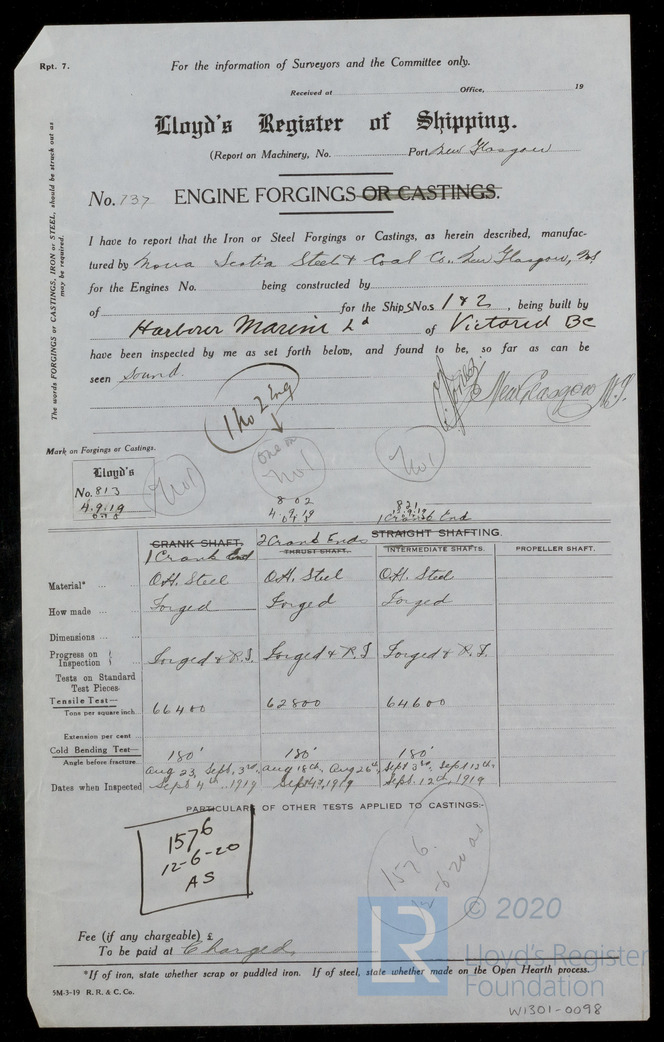 Rpt. 7.
For the information of Surveyors and the Committee only.
Received at Office, 19
Lloyd's Register of Shipping.
(Report on Machinery, No. Port New Glasgow
No. 737 ENGINE FORGINGS OR CASTINGS.
The words FORGINGS or CASTINGS, IRON or STEEL, should be struck out as may be required.
I have to report that the Iron or Steel Forgings or Castings, as herein described, manufac-
tured by Nova Scotia Steel & Coal Co., New Glasgow, N.S.
for the Engines No. being constructed by
of for the Ships Nos 1 & 2, being built by
Harbour Marine Ld of Victoria BC
have been inspected by me as set forth below, and found to be, so far as can be
seen Sound.
New Glasgow N.S.
1 No 2 Eng
Mark on Forgings or Castings.
Lloyd's
No. 813
4.9.19
No1
one on
No1
No1
802
4.9.19
821
1 Crank End
CRANK SHAFT.
1 Crank End
2 Crank Ends
THRUST SHAFT.
STRAIGHT SHAFTING.
INTERMEDIATE SHAFTS.
PROPELLER SHAFT.
Material* O.H. Steel O.H. Steel O.H. Steel
How made Forged Forged Forged
Dimensions
Progress on Inspection Forged & R.T. Forged & R.T. Forged & R.T.
Tests on Standard
Test Pieces.
Tensile Test—
Tons per square inch 66400 62800 64600
Extension per cent
Cold Bending Test—
Angle before fracture 180° 180° 180°
Aug 23, Sept. 3rd, Aug 18th, Aug 26th, Sept 3rd, Sept 12th,
Dates when Inspected Sept 4th, 1919 Sept 4th, 1919 Sept. 12th, 1919
PARTICULARS OF OTHER TESTS APPLIED TO CASTINGS:-
1576
12-6-20
AS
1576.
12-6-20 AS
Fee (if any chargeable) £
To be paid at Charged
*If of iron, state whether scrap or puddled iron. If of steel, state whether made on the Open Hearth process.
5M-3-19 R. R. & C. Co.
LR © 2020
Lloyd's Register
Foundation
W1301-0098